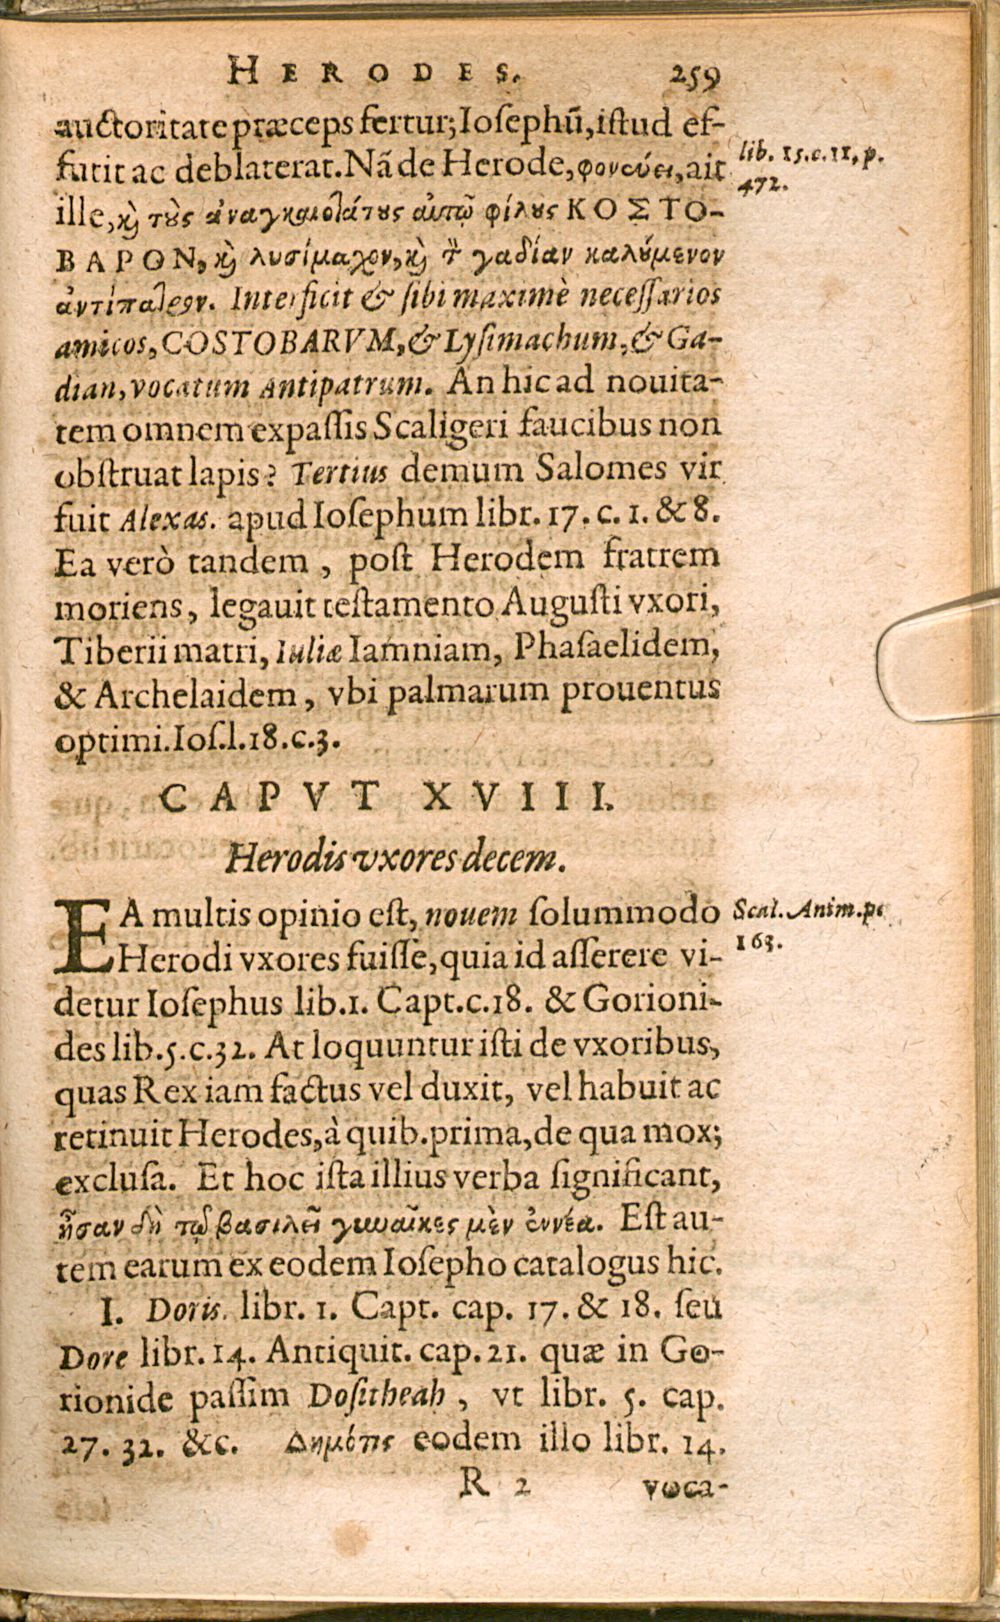 HERODES. 259
auctoritate præceps fertur; Iosephũ, istud ef-
futit ac deblaterat. Nã de Herode, φονεύει, ait
lib. 15. c. 11, p.
472.
ille, καὶ τοὺς ἀναγκαιοτάτους αὐτῷ φίλους ΚΟΣΤΟ-
ΒΑΡΟΝ, καὶ λυσίμαχον, καὶ τὸν γαδίαν καλούμενον
ἀντίπατρον. Interficit & sibi maximè necessarios
amicos, COSTOBARVM, & Lysimachum, & Ga-
dian, vocatum Antipatrum. An hic ad nouita-
tem omnem expassis Scaligeri faucibus non
obstruat lapis? Tertius demum Salomes vir
fuit Alexas. apud Iosephum libr. 17. c. 1. & 8.
Ea verò tandem, post Herodem fratrem
moriens, legauit testamento Augusti vxori,
Tiberii matri, Iuliæ Iamniam, Phasaelidem,
& Archelaidem, vbi palmarum prouentus
optimi. Ios. l. 18. c. 3.
CAPVT XVIII.
Herodis vxores decem.
EA multis opinio est, nouem solummodo
Scal. Anim. p.
163.
Herodi vxores fuisse, quia id asserere vi-
detur Iosephus lib. 1. Capt. c. 18. & Gorioni-
des lib. 5. c. 32. At loquuntur isti de vxoribus,
quas Rex iam factus vel duxit, vel habuit ac
retinuit Herodes, à quib. prima, de qua mox;
exclusa. Et hoc ista illius verba significant,
ἦσαν δὴ τῷ βασιλεῖ γυναῖκες μὲν ἐννέα. Est au-
tem earum ex eodem Iosepho catalogus hic.
I. Doris. libr. 1. Capt. cap. 17. & 18. seu
Dore libr. 14. Antiquit. cap. 21. quæ in Go-
rionide passim Dositheah, vt libr. 5. cap.
27. 32. &c. Δημότις eodem illo libr. 14.
R 2 voca-